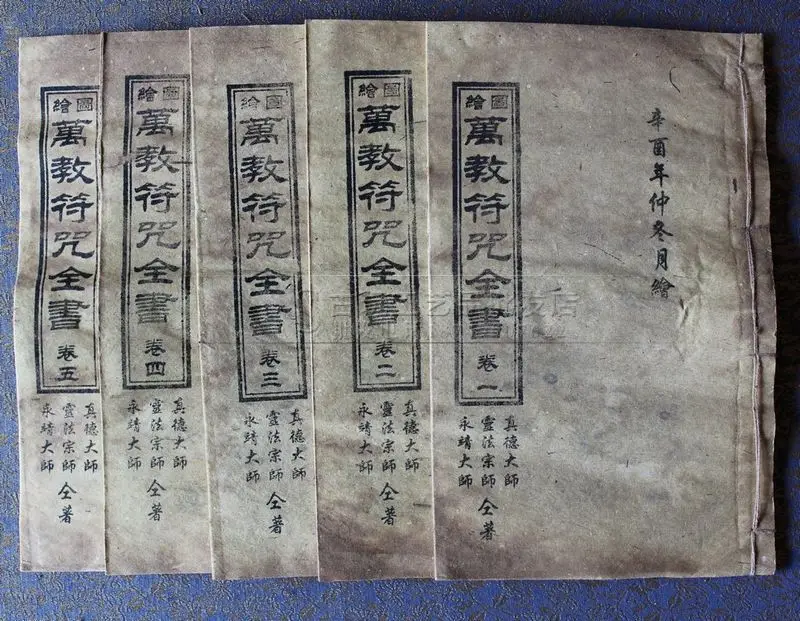 辛酉年仲冬月繪
圖繪
萬教符咒全書
卷一
真德大師
靈法宗師
永靖大師
仝著
圖繪
萬教符咒全書
卷二
真德大師
靈法宗師
永靖大師
仝著
圖繪
萬教符咒全書
卷三
真德大師
靈法宗師
永靖大師
仝著
圖繪
萬教符咒全書
卷四
真德大師
靈法宗師
永靖大師
仝著
圖繪
萬教符咒全書
卷五
真德大師
靈法宗師
永靖大師
仝著